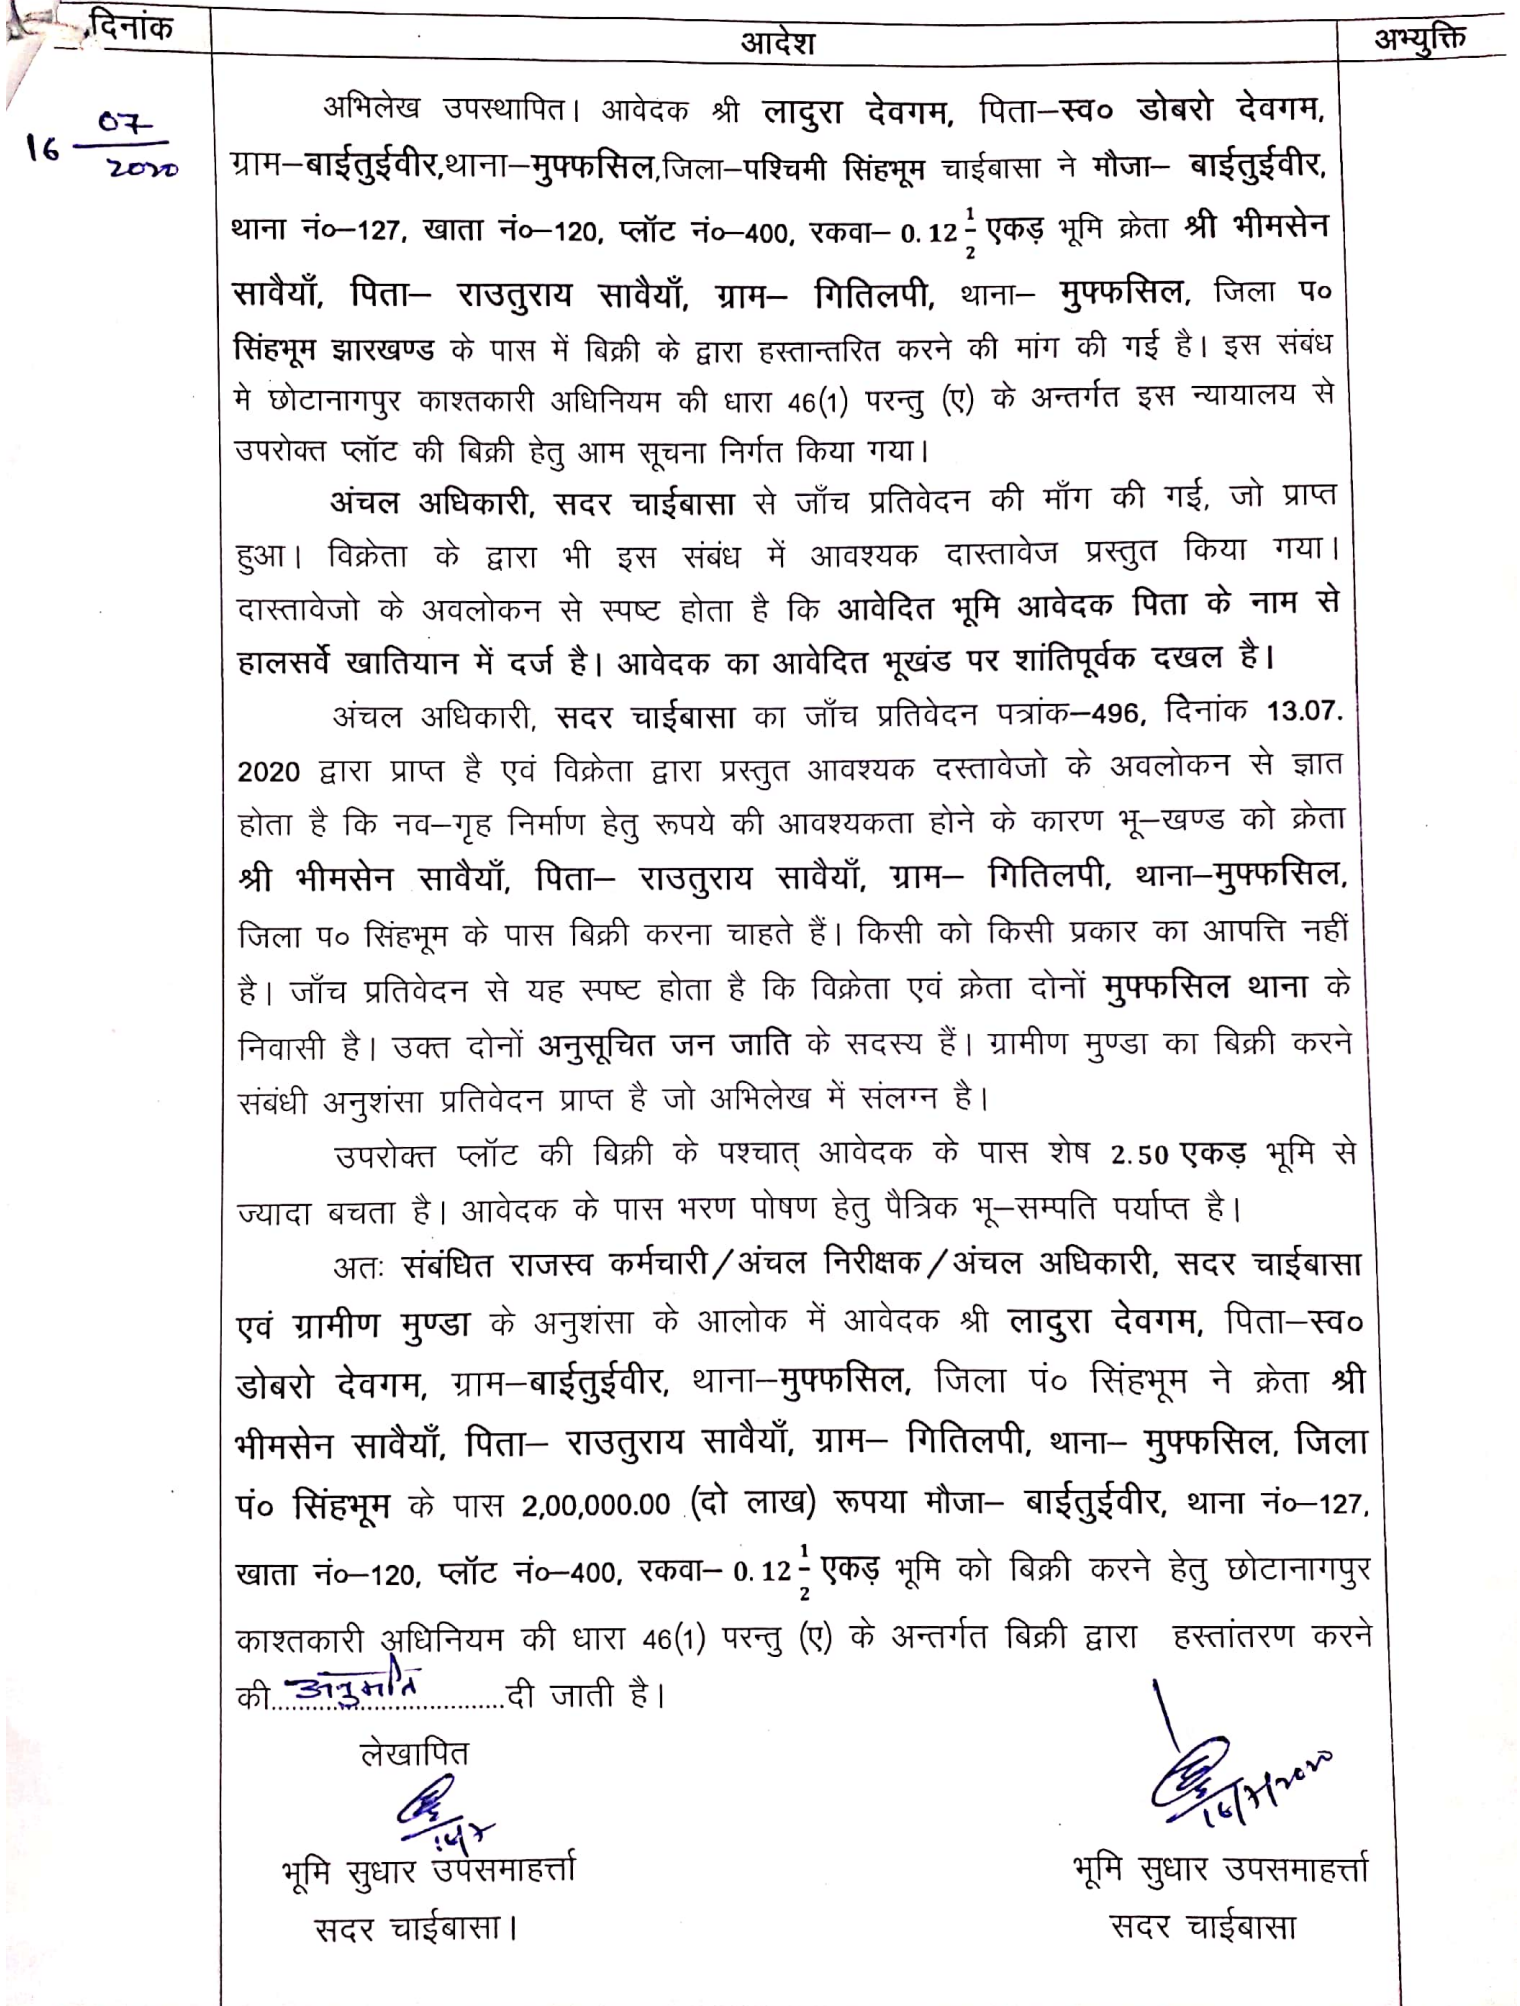 दिनांक आदेश अभ्युक्ति
16 07/2020
अभिलेख उपस्थापित। आवेदक श्री लादुरा देवगम, पिता–स्व० डोबरो देवगम,
ग्राम–बाईतुईवीर,थाना–मुफ्फसिल,जिला–पश्चिमी सिंहभूम चाईबासा ने मौजा– बाईतुईवीर,
थाना नं०–127, खाता नं०–120, प्लॉट नं०–400, रकवा– 0.12 1/2 एकड़ भूमि क्रेता श्री भीमसेन
सावैयाँ, पिता– राउतुराय सावैयाँ, ग्राम– गितिलपी, थाना– मुफ्फसिल, जिला प०
सिंहभूम झारखण्ड के पास में बिक्री के द्वारा हस्तान्तरित करने की मांग की गई है। इस संबंध
मे छोटानागपुर काश्तकारी अधिनियम की धारा 46(1) परन्तु (ए) के अन्तर्गत इस न्यायालय से
उपरोक्त प्लॉट की बिक्री हेतु आम सूचना निर्गत किया गया।
अंचल अधिकारी, सदर चाईबासा से जाँच प्रतिवेदन की माँग की गई, जो प्राप्त
हुआ। विक्रेता के द्वारा भी इस संबंध में आवश्यक दास्तावेज प्रस्तुत किया गया।
दास्तावेजो के अवलोकन से स्पष्ट होता है कि आवेदित भूमि आवेदक पिता के नाम से
हालसर्वे खातियान में दर्ज है। आवेदक का आवेदित भूखंड पर शांतिपूर्वक दखल है।
अंचल अधिकारी, सदर चाईबासा का जाँच प्रतिवेदन पत्रांक–496, दिनांक 13.07.
2020 द्वारा प्राप्त है एवं विक्रेता द्वारा प्रस्तुत आवश्यक दस्तावेजो के अवलोकन से ज्ञात
होता है कि नव–गृह निर्माण हेतु रूपये की आवश्यकता होने के कारण भू–खण्ड को क्रेता
श्री भीमसेन सावैयाँ, पिता– राउतुराय सावैयाँ, ग्राम– गितिलपी, थाना–मुफ्फसिल,
जिला प० सिंहभूम के पास बिक्री करना चाहते हैं। किसी को किसी प्रकार का आपत्ति नहीं
है। जाँच प्रतिवेदन से यह स्पष्ट होता है कि विक्रेता एवं क्रेता दोनों मुफ्फसिल थाना के
निवासी है। उक्त दोनों अनुसूचित जन जाति के सदस्य हैं। ग्रामीण मुण्डा का बिक्री करने
संबंधी अनुशंसा प्रतिवेदन प्राप्त है जो अभिलेख में संलग्न है।
उपरोक्त प्लॉट की बिक्री के पश्चात् आवेदक के पास शेष 2.50 एकड़ भूमि से
ज्यादा बचता है। आवेदक के पास भरण पोषण हेतु पैत्रिक भू–सम्पति पर्याप्त है।
अतः संबंधित राजस्व कर्मचारी/अंचल निरीक्षक/अंचल अधिकारी, सदर चाईबासा
एवं ग्रामीण मुण्डा के अनुशंसा के आलोक में आवेदक श्री लादुरा देवगम, पिता–स्व०
डोबरो देवगम, ग्राम–बाईतुईवीर, थाना–मुफ्फसिल, जिला पं० सिंहभूम ने क्रेता श्री
भीमसेन सावैयाँ, पिता– राउतुराय सावैयाँ, ग्राम– गितिलपी, थाना– मुफ्फसिल, जिला
पं० सिंहभूम के पास 2,00,000.00 (दो लाख) रूपया मौजा– बाईतुईवीर, थाना नं०–127,
खाता नं०–120, प्लॉट नं०–400, रकवा– 0.12 1/2 एकड़ भूमि को बिक्री करने हेतु छोटानागपुर
काश्तकारी अधिनियम की धारा 46(1) परन्तु (ए) के अन्तर्गत बिक्री द्वारा हस्तांतरण करने
की...अनुमति...दी जाती है।
लेखापित
16/7 16/7/2020
भूमि सुधार उपसमाहर्त्ता भूमि सुधार उपसमाहर्त्ता
सदर चाईबासा। सदर चाईबासा